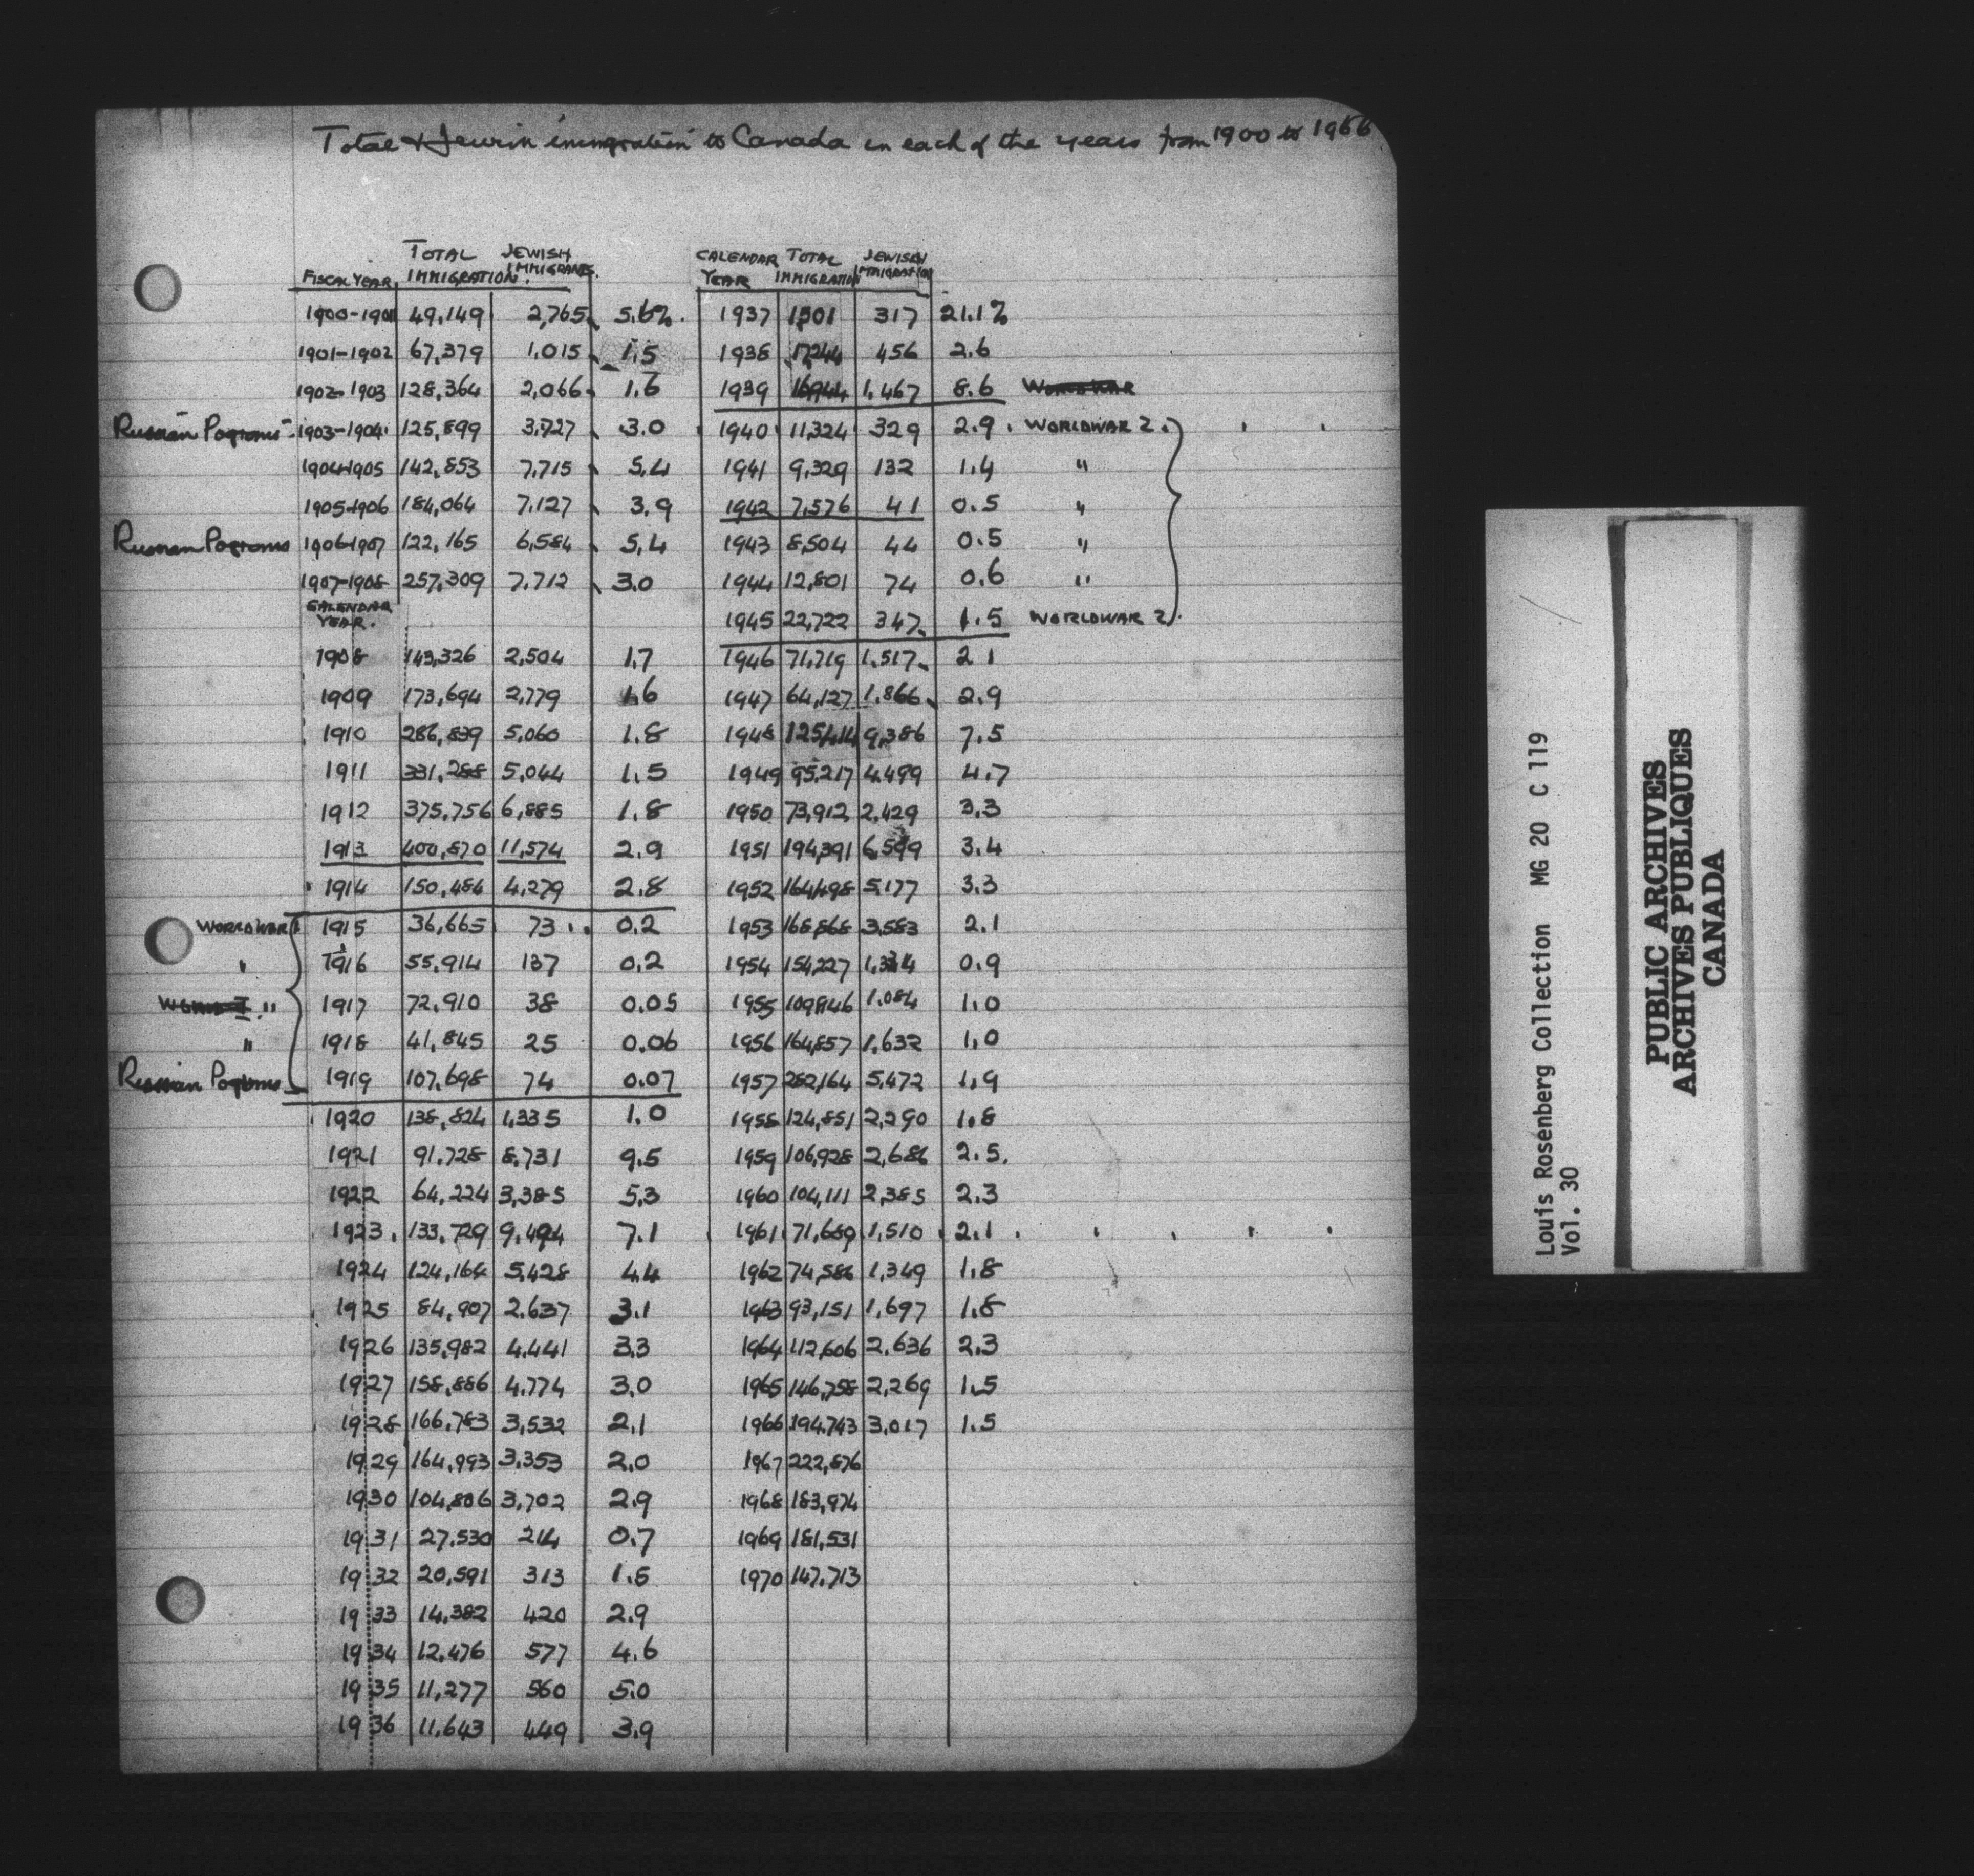 Total & Jewish immigration to Canada in each of the years from 1900 to 1966
FISCAL YEAR TOTAL IMMIGRATION JEWISH IMMIGRANTS.
1900-1901 49,149 2,765 5.6%
1901-1902 67,379 1,015 1.5
1902-1903 128,364 2,066 1.6
Russian Pogroms 1903-1904 125,899 3,727 3.0
1904-1905 142,853 7,715 5.4
1905-1906 184,064 7,127 3.9
Russian Pogroms 1906-1907 122,165 6,584 5.4
1907-1908 257,309 7,712 3.0
CALENDAR YEAR.
1908 143,326 2,504 1.7
1909 173,694 2,779 1.6
1910 286,839 5,060 1.8
1911 331,288 5,044 1.5
1912 375,756 6,885 1.8
1913 400,870 11,574 2.9
1914 150,484 4,279 2.8
WORLD WAR 1 1915 36,665 73 0.2
" 1916 55,914 137 0.2
" 1917 72,910 38 0.05
" 1918 41,845 25 0.06
Russian Pogroms 1919 107,698 74 0.07
1920 138,824 1,335 1.0
1921 91,728 8,731 9.5
1922 64,224 3,385 5.3
1923 133,729 9,494 7.1
1924 124,164 5,428 4.4
1925 84,907 2,637 3.1
1926 135,982 4,441 3.3
1927 158,886 4,774 3.0
1928 166,783 3,532 2.1
1929 164,993 3,353 2.0
1930 104,806 3,702 2.9
1931 27,530 214 0.7
1932 20,591 313 1.5
1933 14,382 420 2.9
1934 12,476 577 4.6
1935 11,277 560 5.0
1936 11,643 449 3.9
CALENDAR YEAR TOTAL IMMIGRATION JEWISH IMMIGRATION
1937 1,501 317 21.1%
1938 17,244 456 2.6
1939 16,944 1,467 8.6 WORLD WAR
1940 11,324 329 2.9 WORLD WAR 2.
1941 9,329 132 1.4 "
1942 7,576 41 0.5 "
1943 8,504 44 0.5 "
1944 12,801 74 0.6 "
1945 22,722 347 1.5 WORLD WAR 2
1946 71,719 1,517 2.1
1947 64,127 1,866 2.9
1948 125,414 9,386 7.5
1949 95,217 4,499 4.7
1950 73,912 2,429 3.3
1951 194,391 6,599 3.4
1952 164,498 5,177 3.3
1953 168,868 3,583 2.1
1954 154,227 0.9
1955 109,946 1,084 1.0
1956 164,857 1,632 1.0
1957 282,164 5,472 1.9
1958 124,851 2,290 1.8
1959 106,928 2,686 2.5
1960 104,111 2,385 2.3
1961 71,689 1,510 2.1
1962 74,586 1,349 1.8
1963 93,151 1,697 1.8
1964 112,606 2,636 2.3
1965 146,758 2,269 1.5
1966 194,743 3,017 1.5
1967 222,876
1968 183,974
1969 181,531
1970 147,713
Louis Rosenberg Collection MG 20 C 119
Vol. 30
PUBLIC ARCHIVES
ARCHIVES PUBLIQUES
CANADA